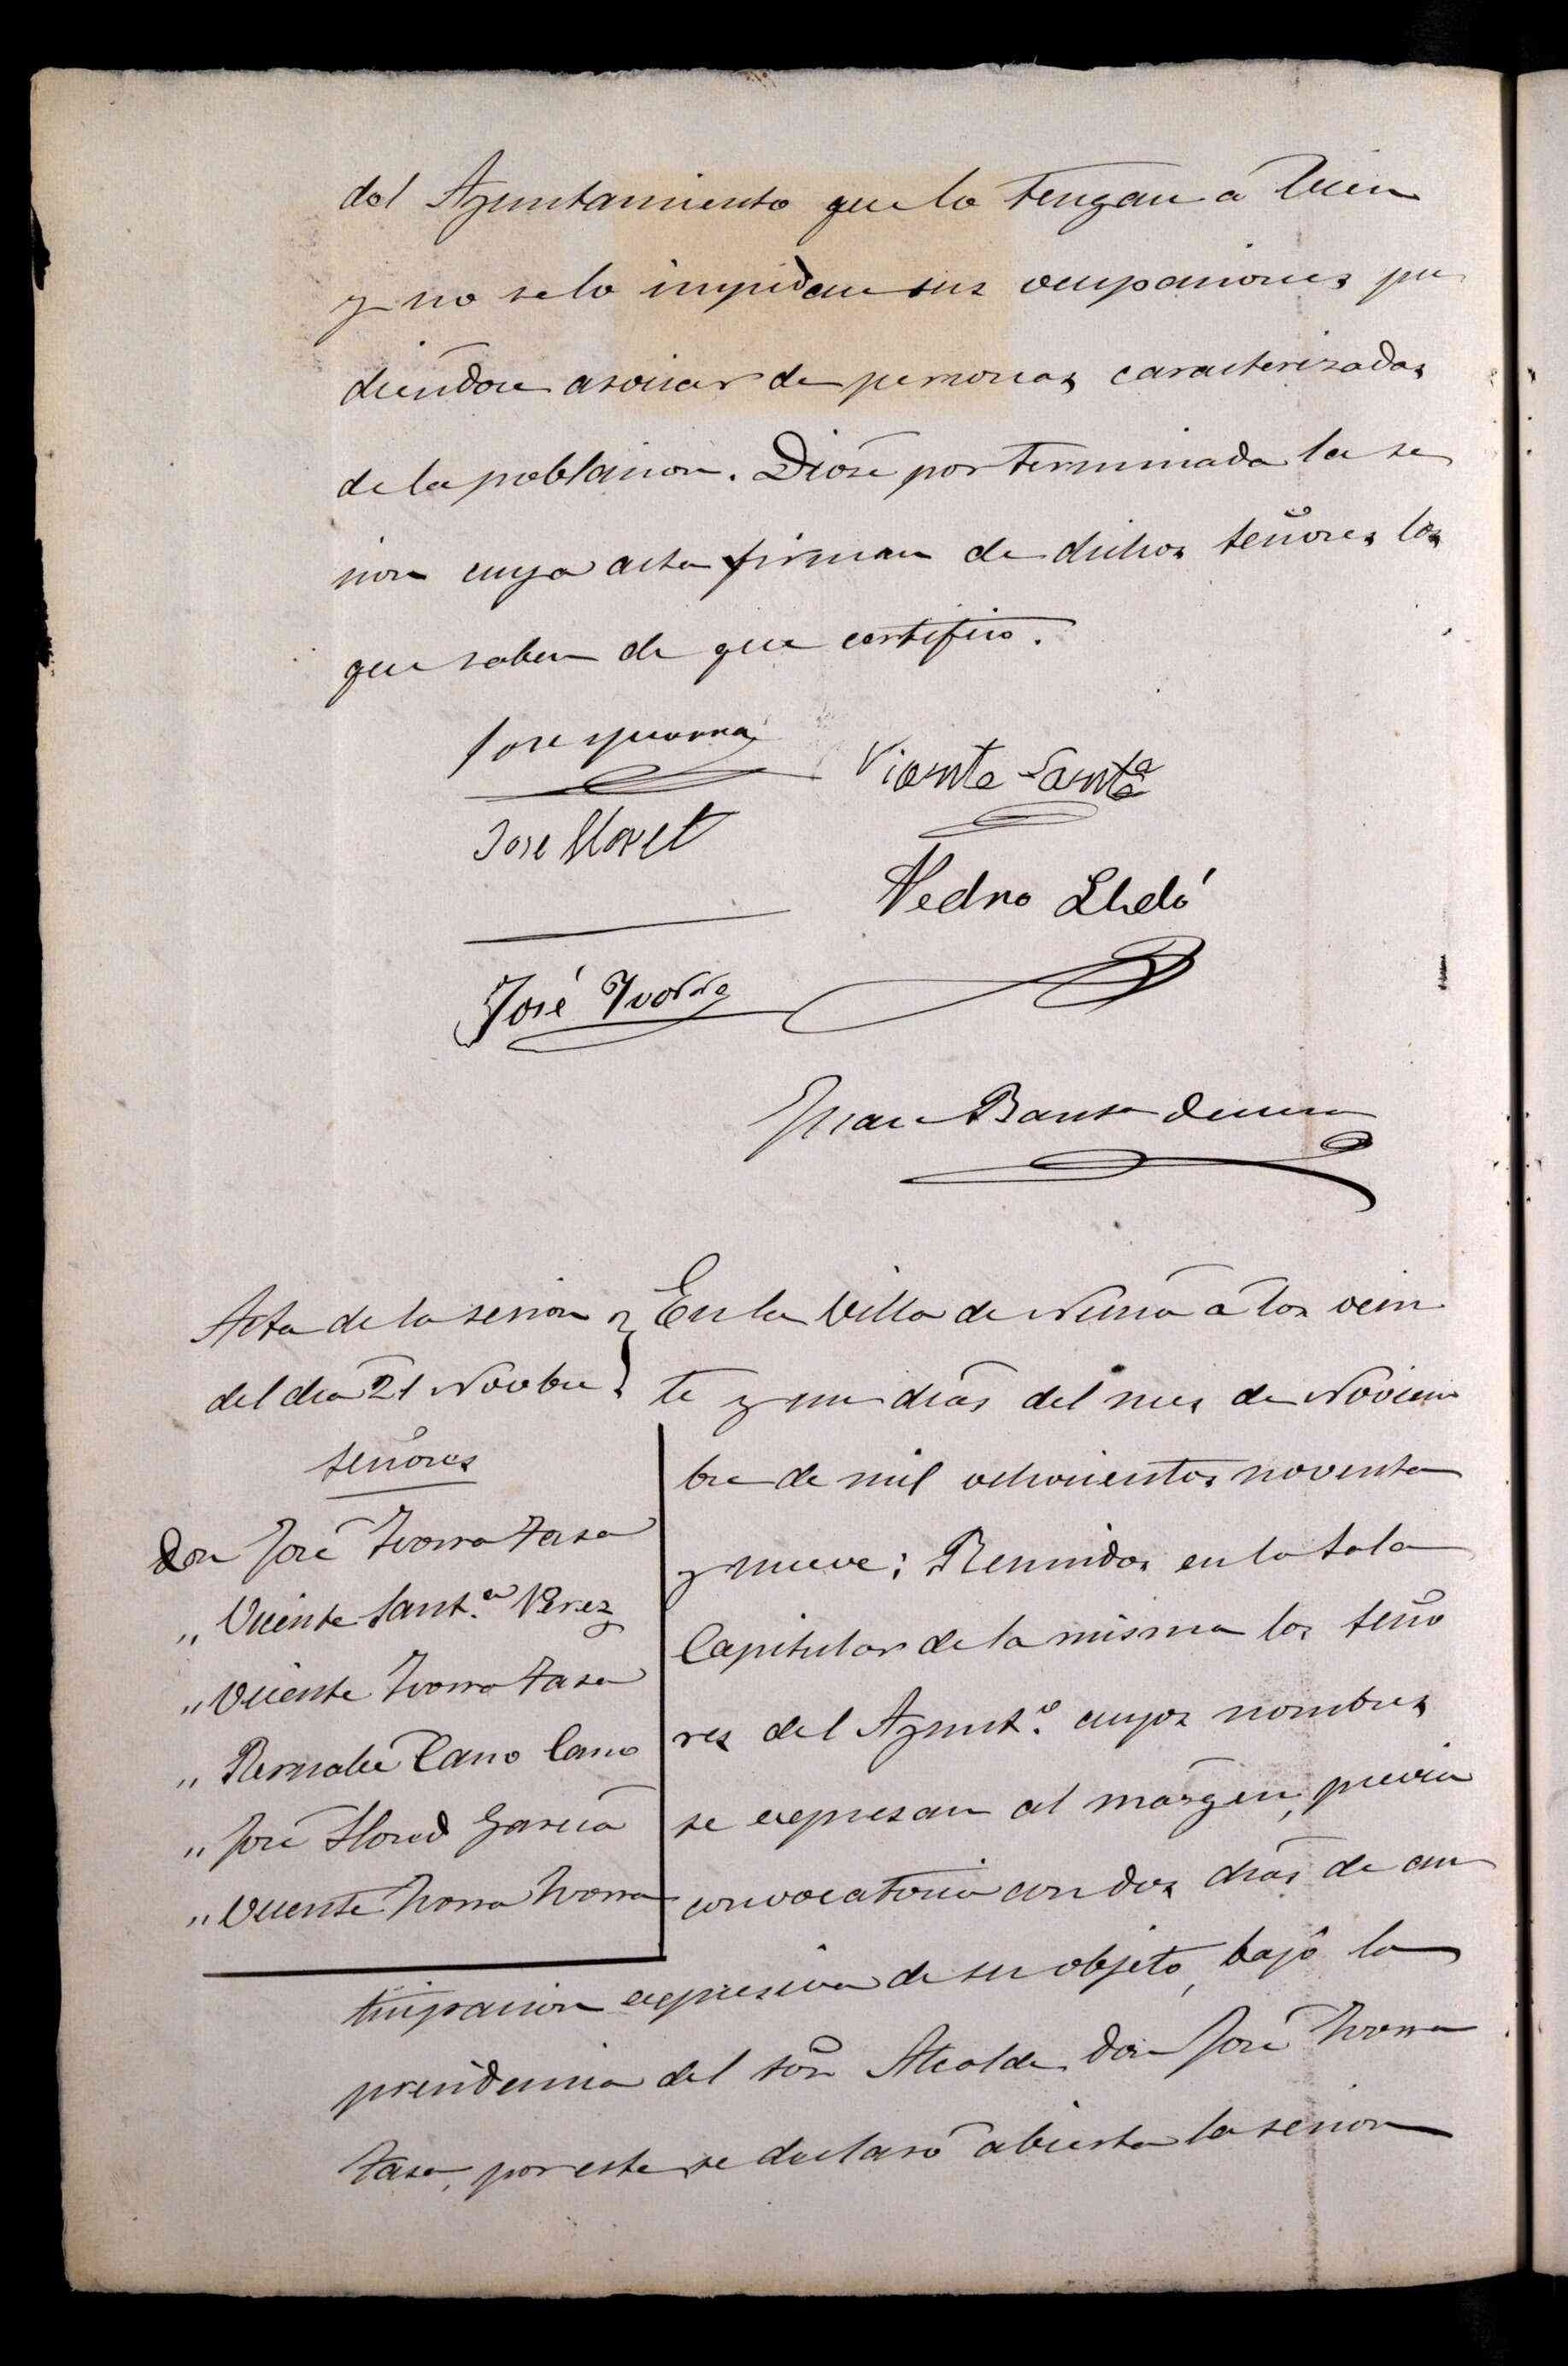 del Ayuntamiento que lo tengan á bien
y no se lo impidan sus ocupaciones pu
diendose asociar de personas caracterizadas
de la poblacion. Diose por terminada la se
sion cuya acta firman de dichos señores los
que saben de que certifico.
Jose Yvorra
Vicente Santa
Jose Lloret
Pedro Lledó
José Yvorra
Juan Bauta
Acta de la sesion
del dia 21 Novbre
Señores
Don José Ivorra Vasa
" Vicente Sant.a Perez
" Vicente Ivorra Vasa
" Bernabé Cano Cano
" José Lloret Garcia
" Vicente Ivorra Ivorra
En la Villa de Nucia á los vein
te y un dias del mes de Noviem
bre de mil ochocientos noventa
y nueve; Reunidos en la Sala
Capitular de la misma los Seño
res del Ayunt.o cuyos nombres
se expresan al margen, previa
convocatoria con dos dias de an
ticipacion expresiva de su objeto, bajo la
presidencia del Sõr Alcalde don José Ivorra
Vasa, por este se declaró abierta la sesion